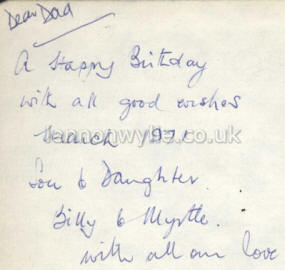 Dear Dad
A Happy Birthday
with all good wishes
March 1971
Son & Daughter.
Billy & Myrtle.
with all our love